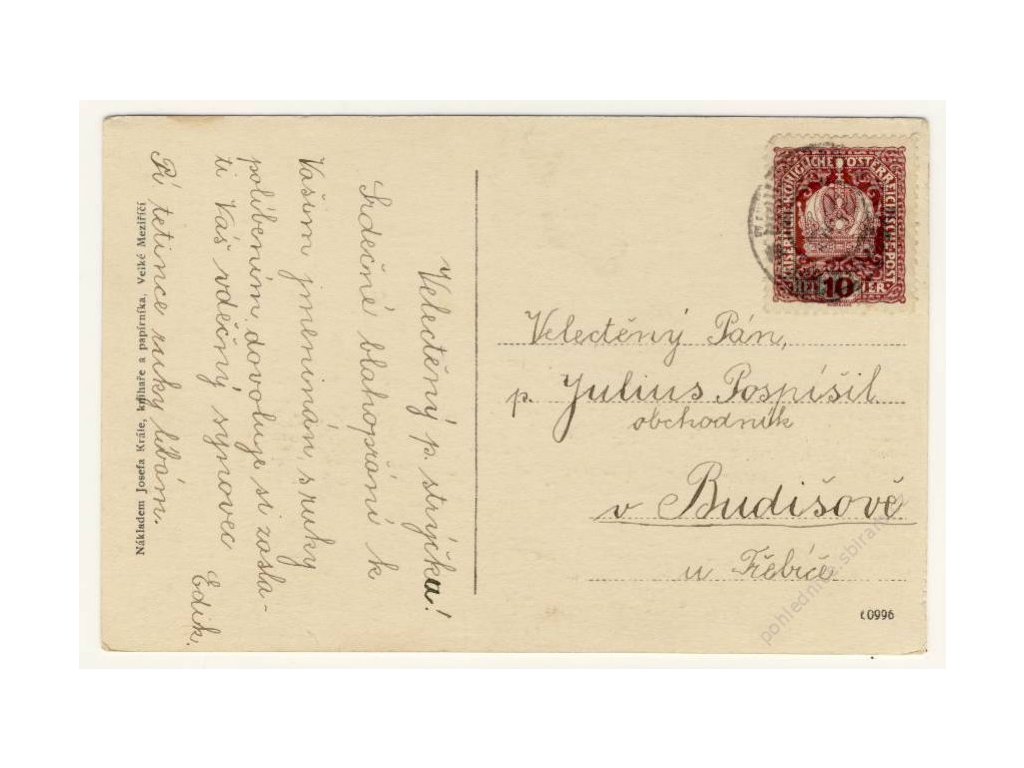 Velectěný p. strýčku!
Srdečné blahopřání k
Vašim jmeninám, s ruky
políbením, dovoluje si zasla-
ti Váš vděčný synovec
Edik.
Pí tetince ruky líbám.
Nákladem Josefa Krále, knihaře a papírníka, Velké Meziříčí
KAISERLICHE KÖNIGLICHE ÖSTERREICHISCHE POST
10
Velectěný Pán,
p. Julius Pospíšil
obchodník
v Budišově
u Třebíče
t0996